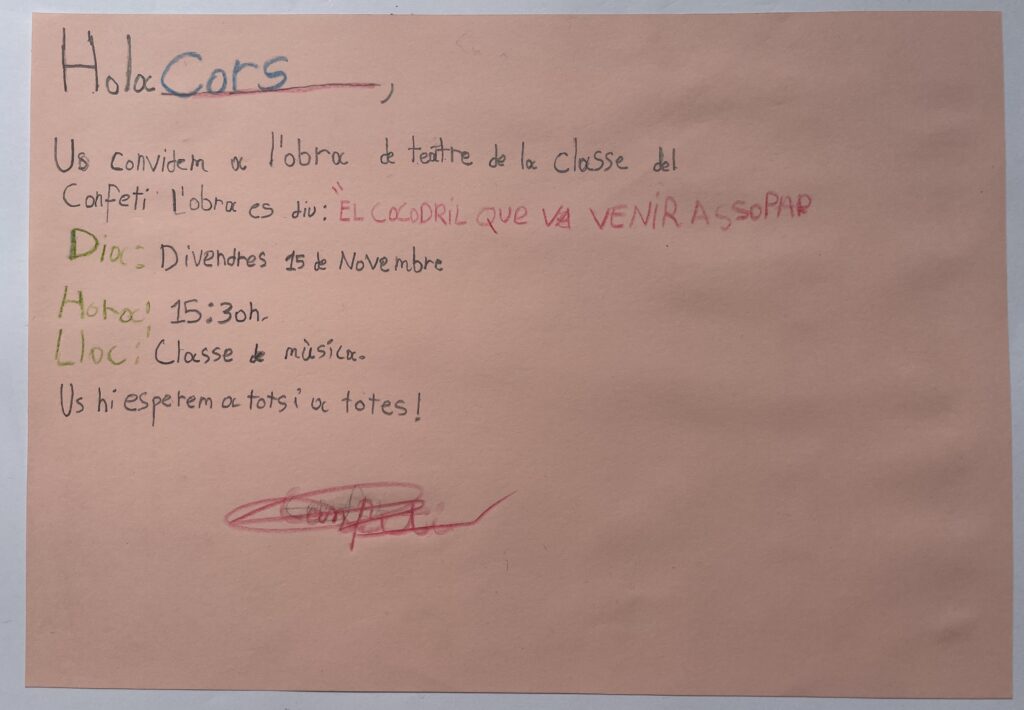 Hola Cors,
Us convidem a l'obra de teatre de la classe del
Confeti L'obra es diu: "EL COCODRIL QUE VA VENIR ASSOPAR
Dia: Divendres 15 de Novembre
Hora: 15:30h.
Lloc: Classe de mùsica.
Us hi esperem a tots i a totes!
Confeti